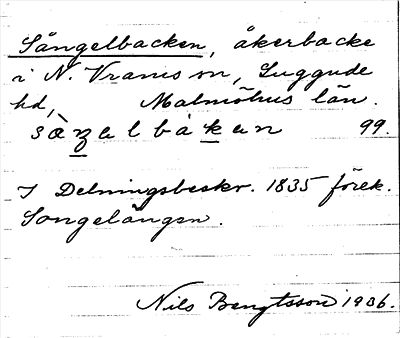 Sångelbacken, åkerbacke
i N. Vrams sn, Luggude
hd, Malmöhus län.
sàŋəlbàkən 99.
I Delningsbeskr. 1835 förek.
Songelängen.
Nils Bengtsson 1936.